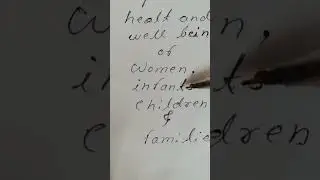 healt and
well bein
of
women.
infants
children
&
familie